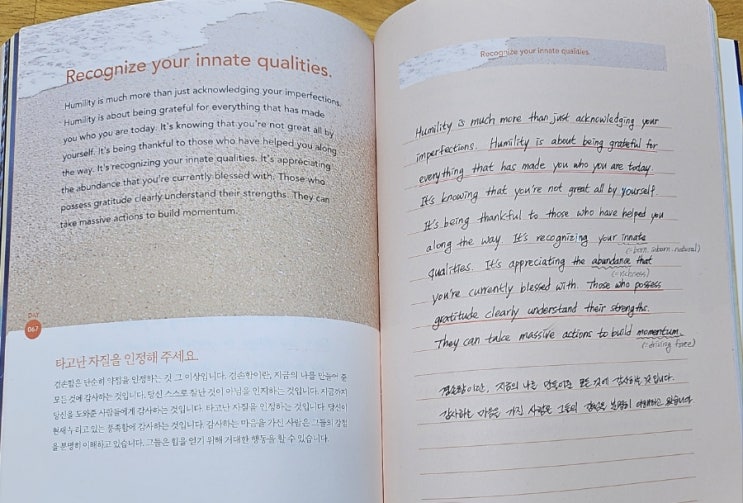 Recognize your innate qualities.
Humility is much more than just acknowledging your imperfections.
Humility is about being grateful for everything that has made
you who you are today. It's knowing that you're not great all by
yourself. It's being thankful to those who have helped you along
the way. It's recognizing your innate qualities. It's appreciating
the abundance that you're currently blessed with. Those who
possess gratitude clearly understand their strengths. They can
take massive actions to build momentum.
DAY
067
타고난 자질을 인정해 주세요.
겸손함은 단순히 약점을 인정하는 것 그 이상입니다. 겸손함이란, 지금의 나를 만들어 준
모든 것에 감사하는 것입니다. 당신 스스로 잘난 것이 아님을 인지하는 것입니다. 지금까지
당신을 도와준 사람들에게 감사하는 것입니다. 타고난 자질을 인정하는 것입니다. 당신이
현재 누리고 있는 풍족함에 감사하는 것입니다. 감사하는 마음을 가진 사람은 그들의 강점
을 분명히 이해하고 있습니다. 그들은 힘을 얻기 위해 거대한 행동을 할 수 있습니다.
Recognize your innate qualities.
Humility is much more than just acknowledging your
imperfections. Humility is about being grateful for
everything that has made you who you are today.
It's knowing that you're not great all by yourself.
It's being thankful to those who have helped you
along the way. It's recognizing your innate
(=born, inborn, natural)
qualities. It's appreciating the abundance that
(=richness)
you're currently blessed with. Those who possess
gratitude clearly understand their strengths.
They can take massive actions to build momentum.
(=driving force)
겸손함이란, 지금의 나를 만들어준 모든 것에 감사하는 것입니다.
감사하는 마음을 가진 사람은 그들의 강점을 분명히 이해하고 있습니다.